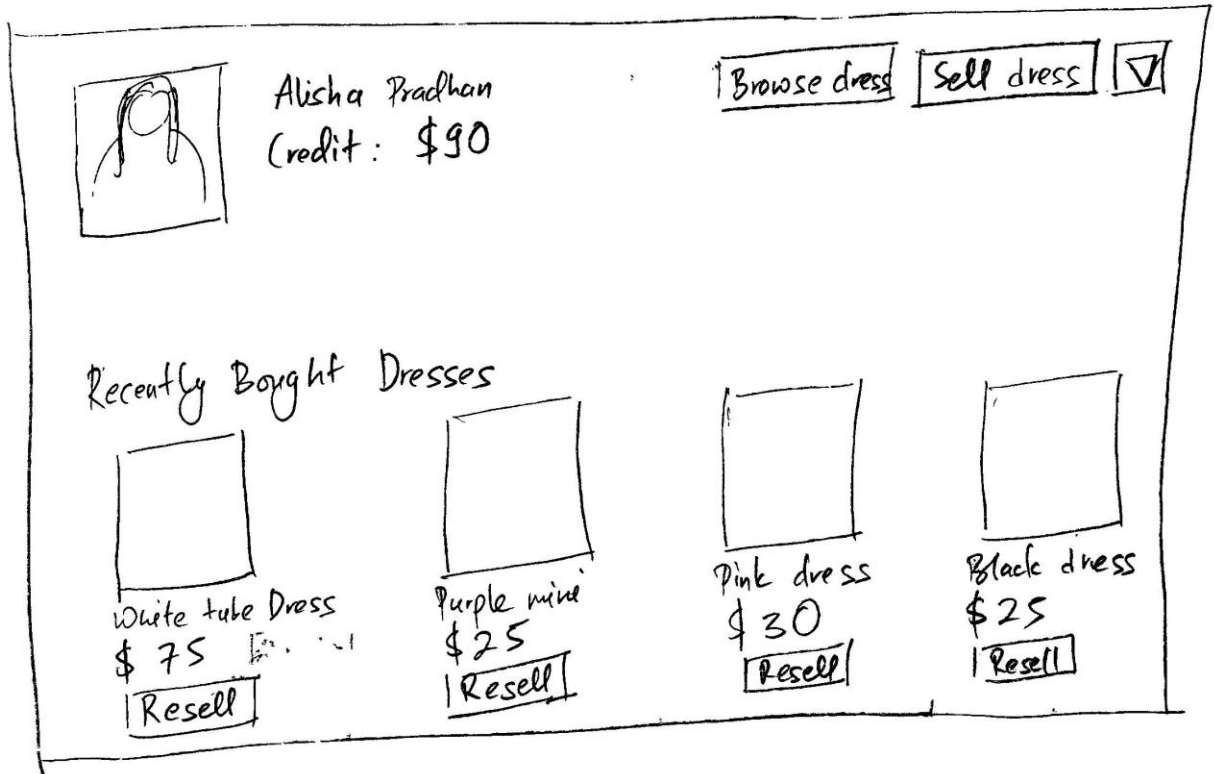 Alisha Pradhan
Credit: $90
Browse dress
Sell dress
Recently Bought Dresses
White tube Dress
$75
Resell
Purple mini
$25
Resell
Pink dress
$30
Resell
Black dress
$25
Resell